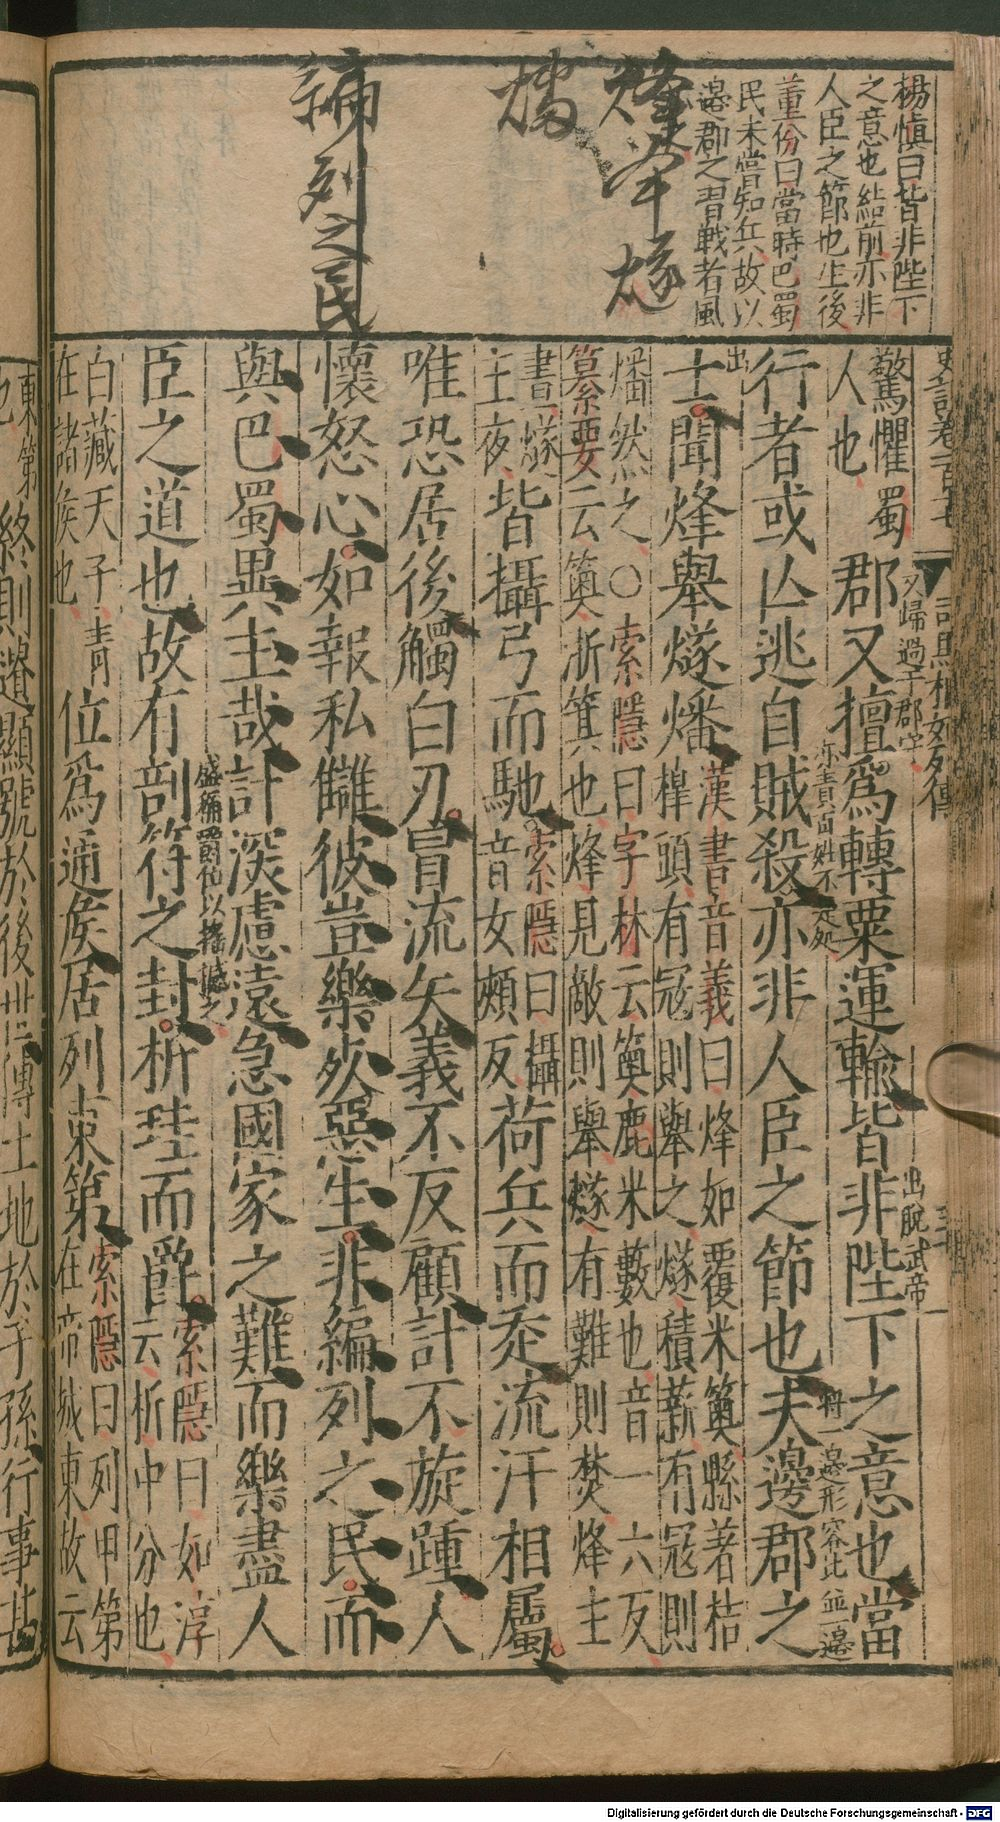 楊慎曰皆非陛下
之意也結前亦非
人臣之節也生後
董份曰當時巴蜀
民未嘗知兵故以
邊郡之習戰者風
烽舉燧
燔
編列之民
史記卷一百十七
司馬相如列傳
又歸過于郡守
亦責百姓不是處
出脫武帝
將一邊形容比並一邊
驚懼蜀
人也
郡又擅為轉粟運輸皆非陛下之意也當
行者或亡逃自賊殺亦非人臣之節也夫邊郡之
士聞烽舉燧燔
漢書音義曰烽如覆米䉛縣著桔
槹頭有寇則舉之燧積薪有寇則
燔然之〇索隱曰字林云䉛漉米籔也音一六反
纂要云䉛淅箕也烽見敵則舉燧有難則焚烽主
晝燧
主夜
皆攝弓而馳
索隱曰攝
音女頰反
荷兵而走流汗相屬
唯恐居後觸白刃冒流矢義不反顧計不旋踵人
懷怒心如報私讎彼豈樂死惡生非編列之民而
與巴蜀異主哉計深慮遠急國家之難而樂盡人
盛稱爵位以搖撼之
臣之道也故有剖符之封析珪而爵
索隱曰如淳
云析中分也
白藏天子青
在諸侯也
位為通侯居列東第
索隱曰列甲第
在帝城東故云
東第
也
終則遺顯號於後世傳土地於子孫行事甚
Digitalisierung gefördert durch die Deutsche Forschungsgemeinschaft - DFG